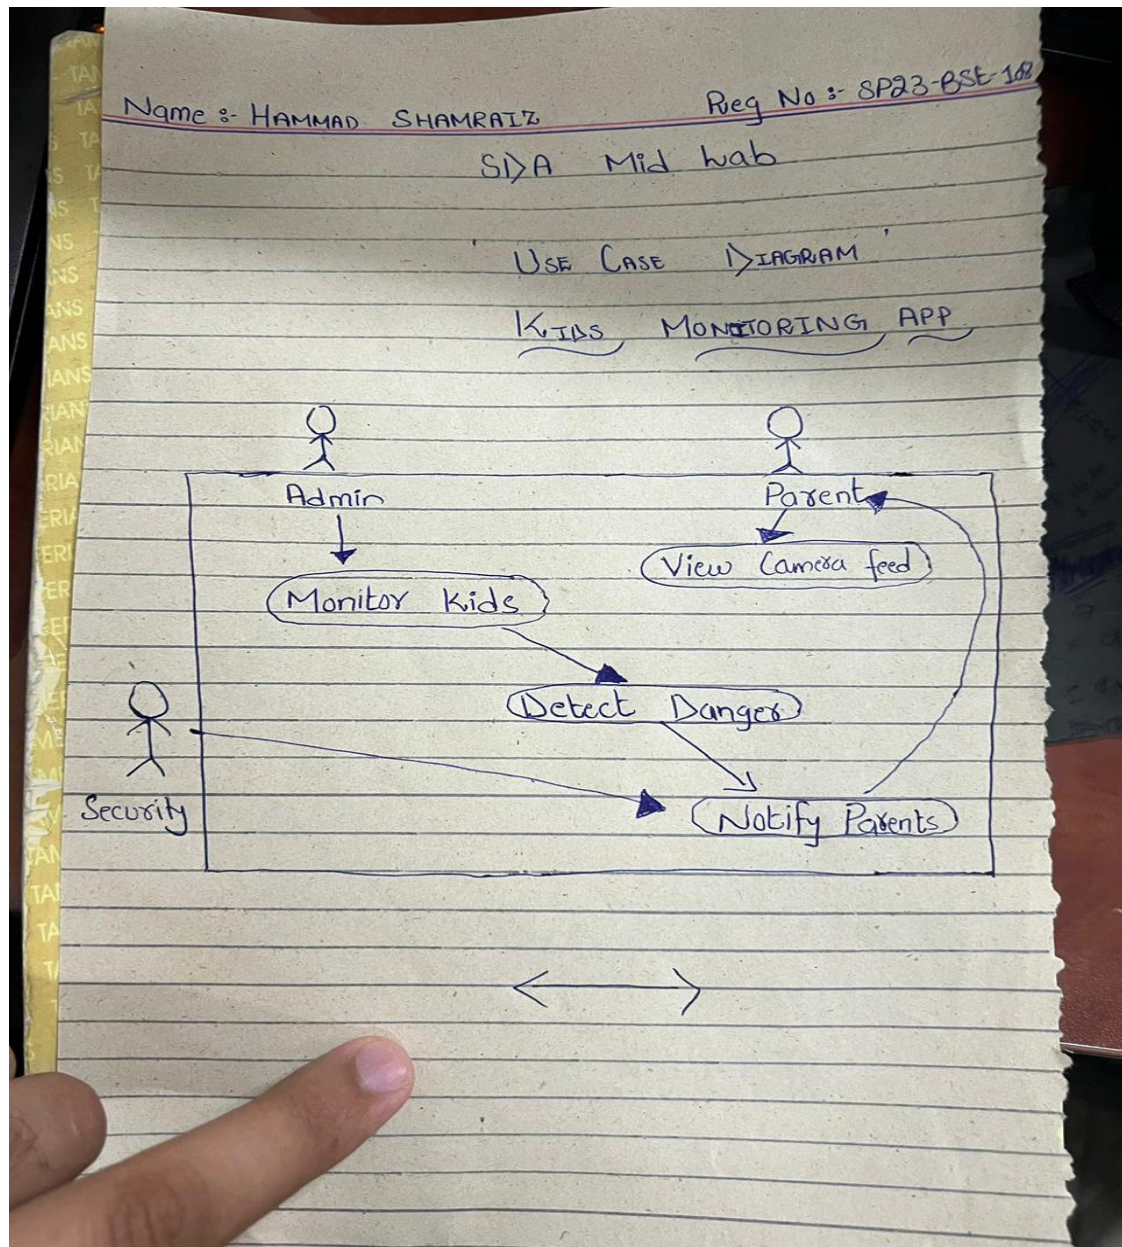 Name :- HAMMAD SHAMRAIZ Reg No :- SP23-BSE-168
SDA Mid Lab
' USE CASE DIAGRAM '
KIDS MONITORING APP
Admin Parent
View Camera feed
Monitor Kids
Detect Danger
Security Notify Parents